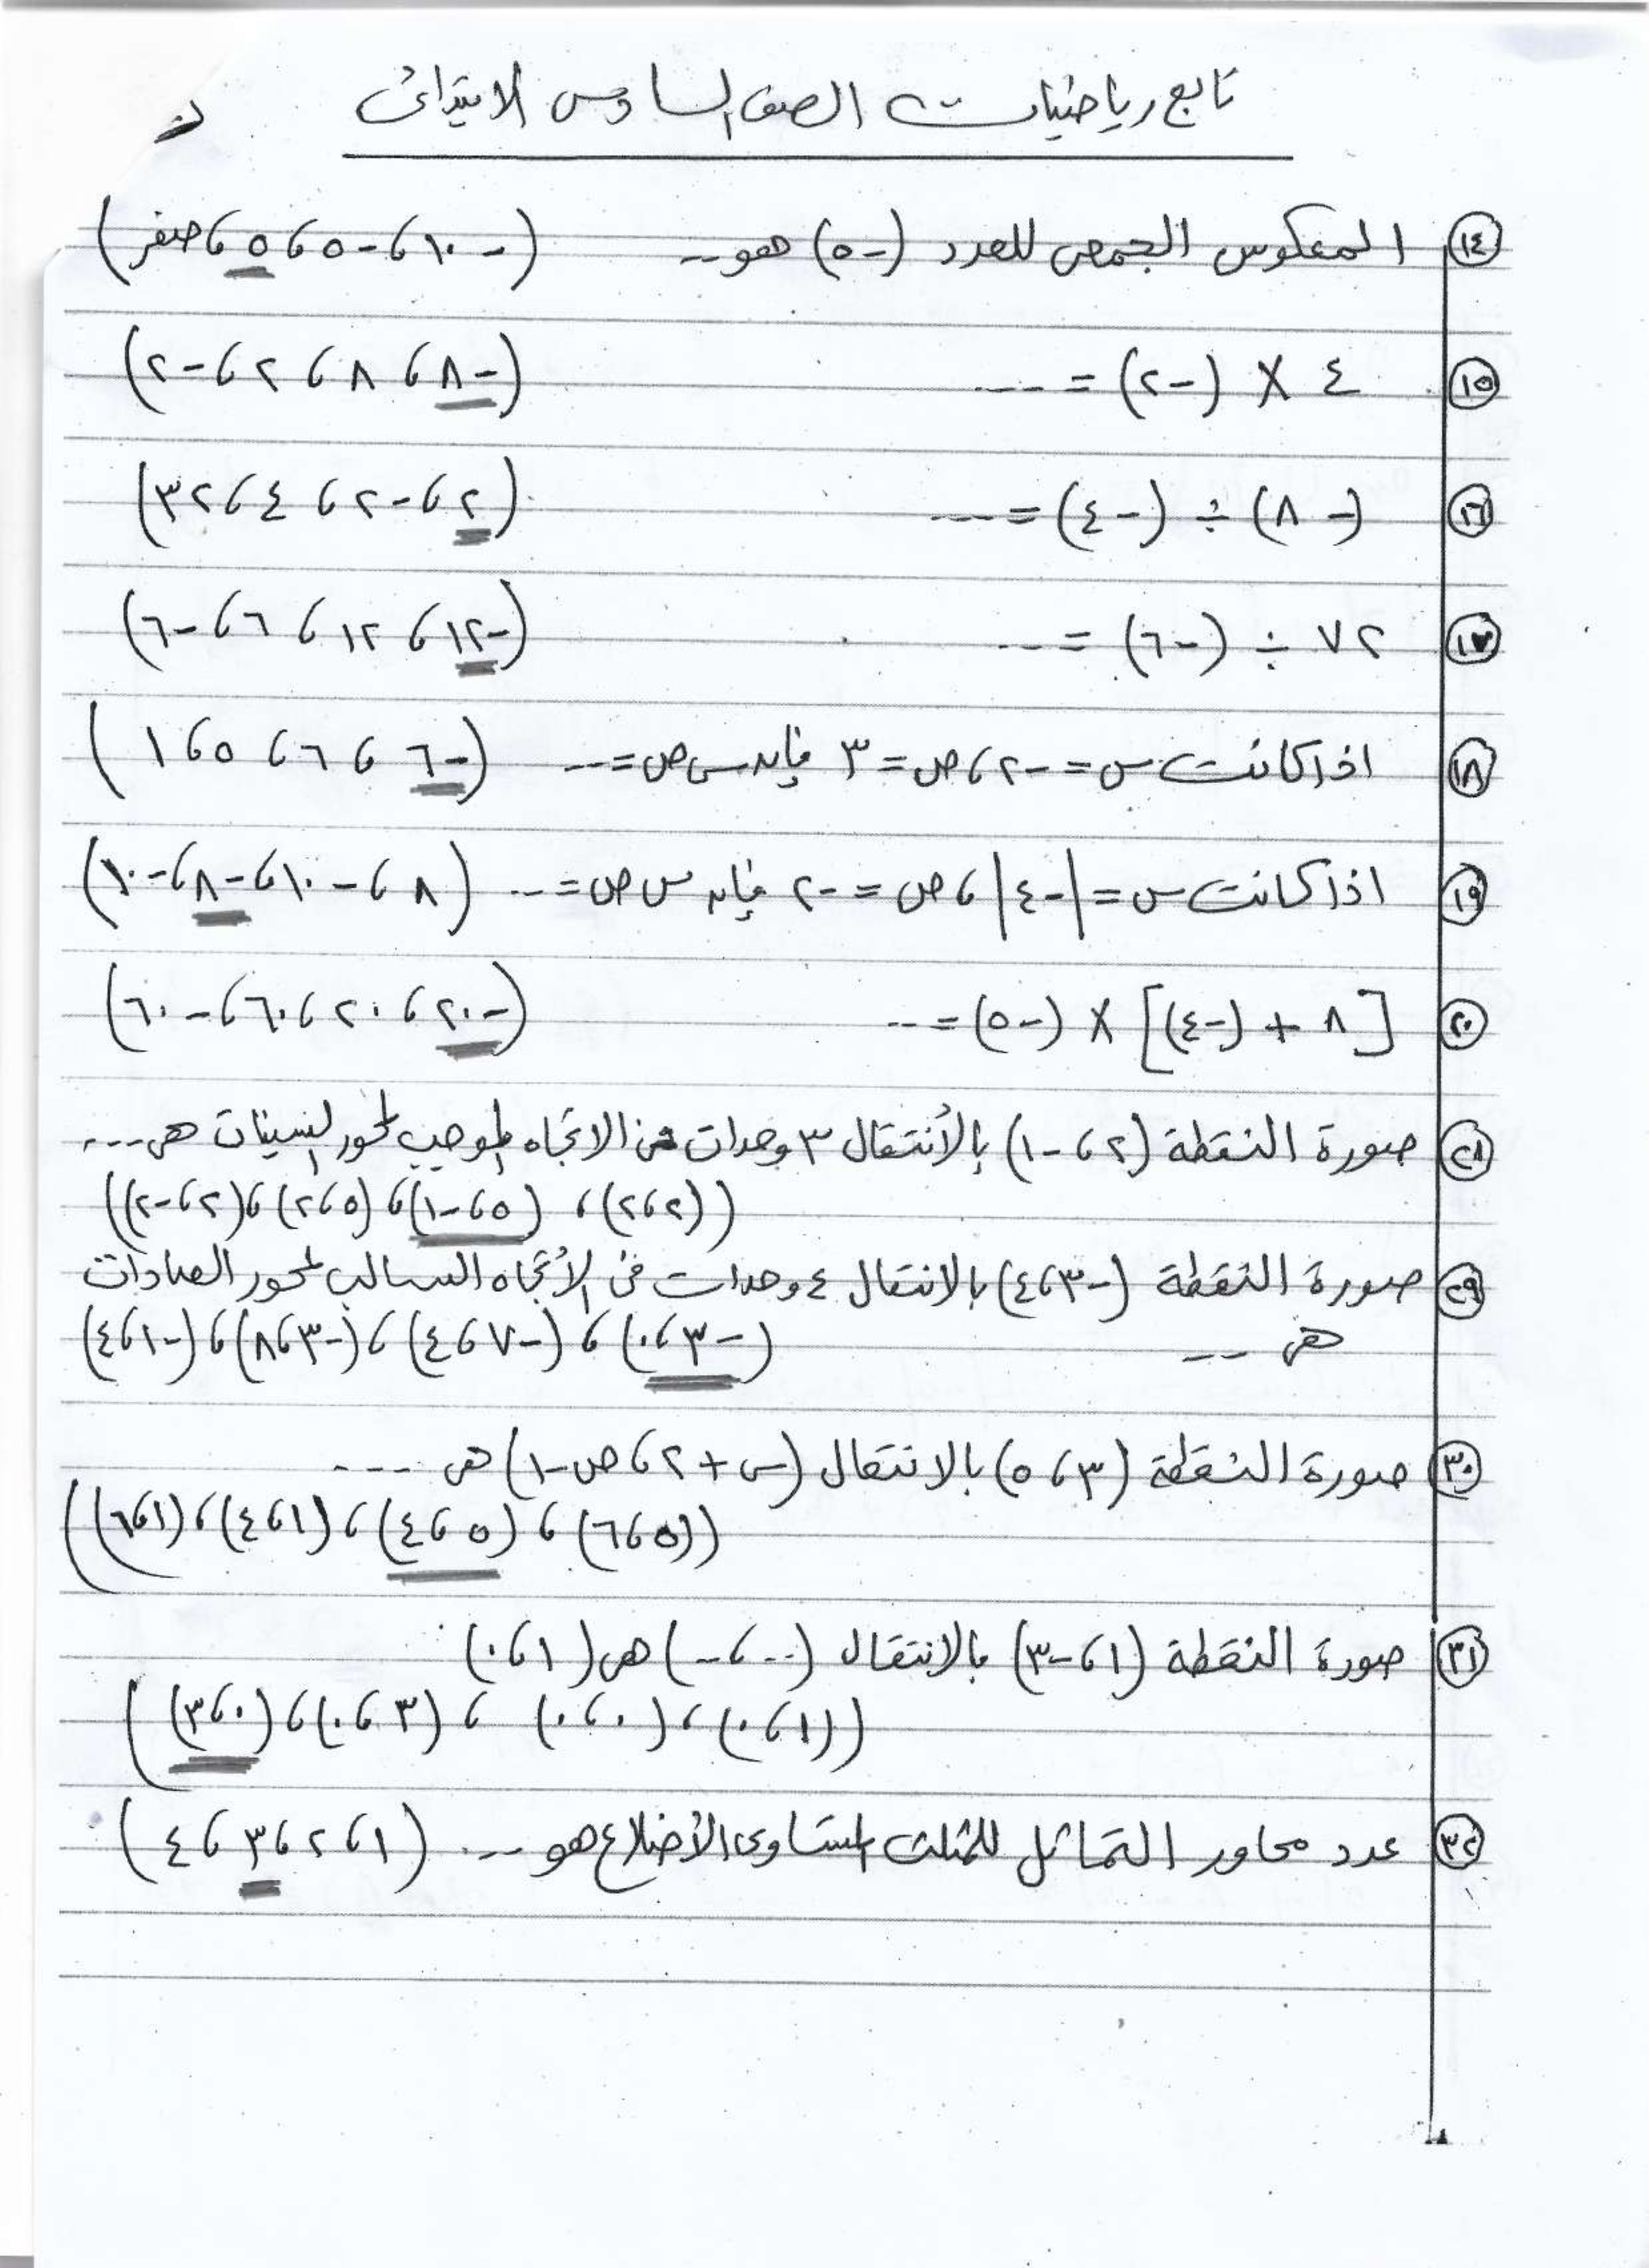 تابع رياضيات الصف السادس الابتدائى
١٤ المعكوس الجمعى للعدد (-٥) هو -- (-١٠ ، -٥ ، ٥ ، صفر)
١٥ ٤ × (-٢) = ---- (-٨ ، ٨ ، ٢ ، -٢)
١٦ (-٨) ÷ (-٤) = ---- (٢ ، -٢ ، ٤ ، ٣٢)
١٧ ٧٢ ÷ (-٦) = --- (-١٢ ، ١٢ ، ٦ ، -٦)
١٨ اذا كانت س = -٢ ، ص = ٣ فإن س ص = --- (-٦ ، ٦ ، ٥ ، ١)
١٩ اذا كانت س = |-٤| ، ص = -٢ فإن س ص = --- (٨ ، -١٠ ، -٨ ، -١٠)
٢٠ [٨ + (-٤)] × (-٥) = --- (-٢٠ ، ٢٠ ، ٦٠ ، -٦٠)
٢٨ صورة النقطة (٢ ، -١) بالأنتقال ٣ وحدات فى الاتجاه الموجب لمحور السينات هى ----
((٢ ، ٢) ، (٥ ، -١) ، (٥ ، ٢) ، (٢ ، -٢))
٢٩ صورة النقطة (-٣ ، ٤) بالانتقال ٤ وحدات فى الأتجاه السالب لمحور الصادات
هى -- (-٣ ، ٠) ، (-٧ ، ٤) ، (-٣ ، ٨) ، (-١ ، ٤)
٣٠ صورة النقطة (٣ ، ٥) بالانتقال (س + ٢ ، ص - ١) هى ----
((٥ ، ٦) ، (٥ ، ٤) ، (١ ، ٤) ، (١ ، ٦))
٣١ صورة النقطة (١ ، -٣) بالانتقال (-- ، --) هى (١ ، ٠)
((١ ، ٠) ، (٠ ، ٠) ، (٣ ، ٠) ، (٠ ، ٣))
٣٢ عدد محاور التماثل للمثلث المتساوى الأضلاع هو --- (١ ، ٢ ، ٣ ، ٤)